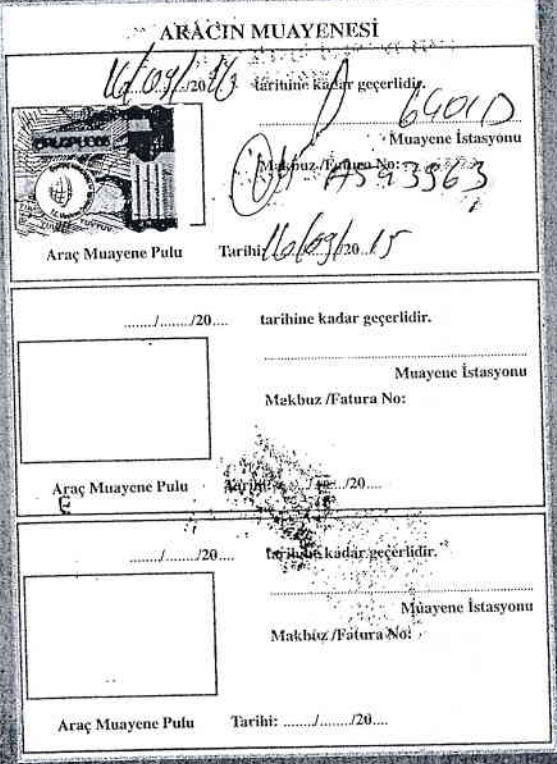 ARACIN MUAYENESİ
16/09/2016 tarihine kadar geçerlidir.
6401D
Muayene İstasyonu
Makbuz /Fatura No:
A543963
Araç Muayene Pulu Tarihi: 16/09/2015
......../......../20.... tarihine kadar geçerlidir.
Muayene İstasyonu
Makbuz /Fatura No:
Araç Muayene Pulu Tarihi: ......../......../20....
......../......../20.... tarihine kadar geçerlidir.
Muayene İstasyonu
Makbuz /Fatura No:
Araç Muayene Pulu Tarihi: ......../......../20....